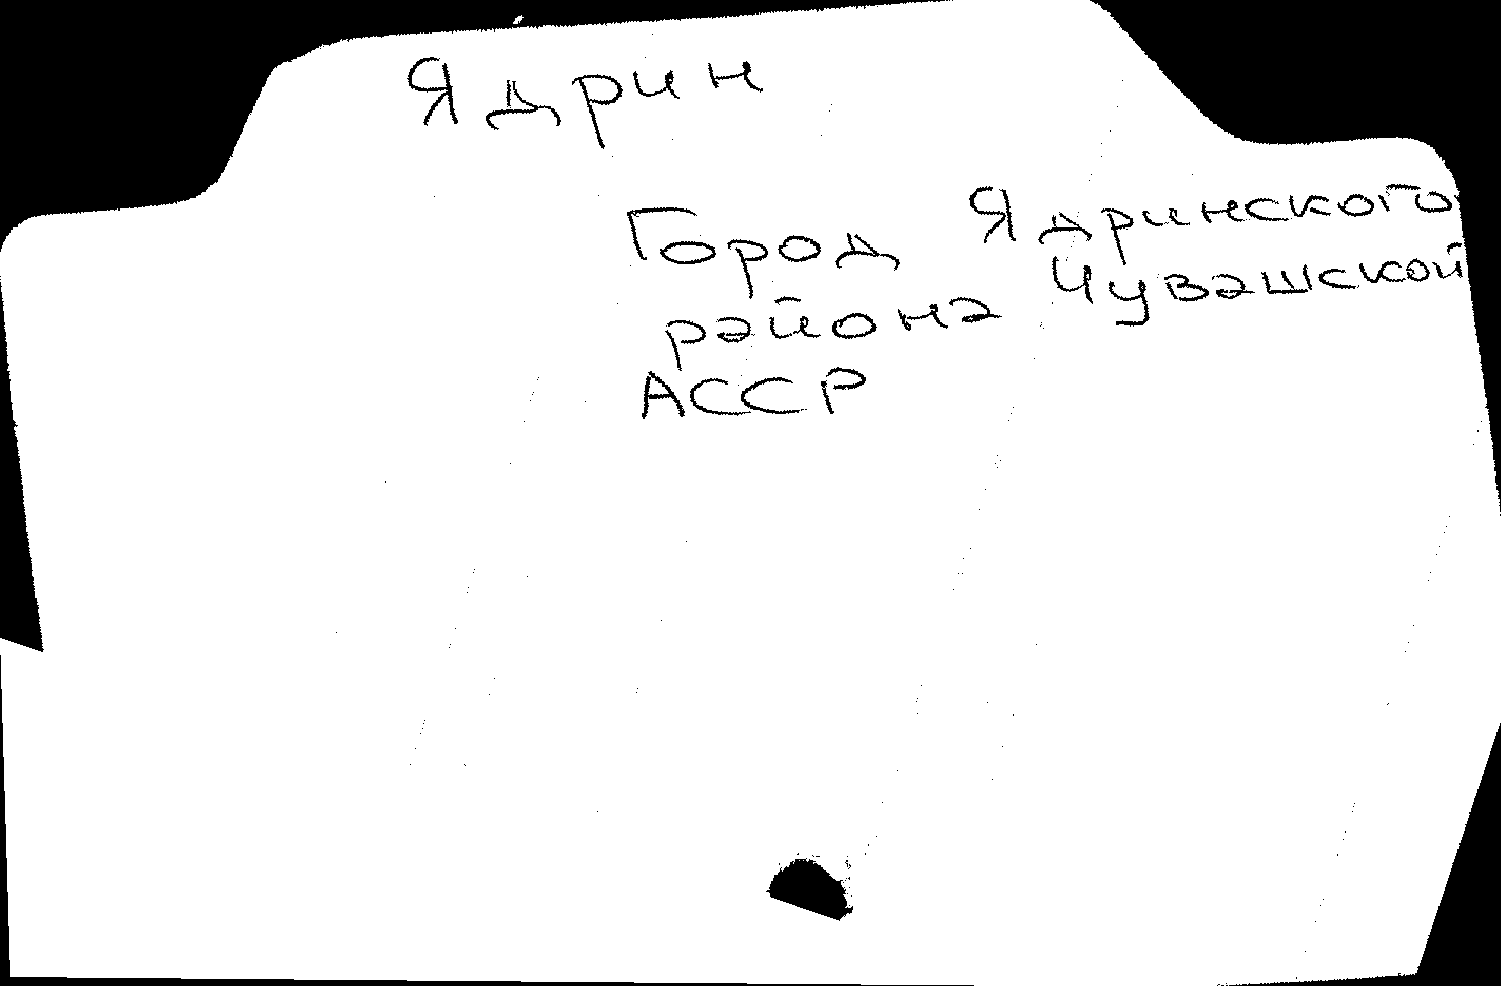 Ядрин
Город Ядринского
района Чувашской
АССР